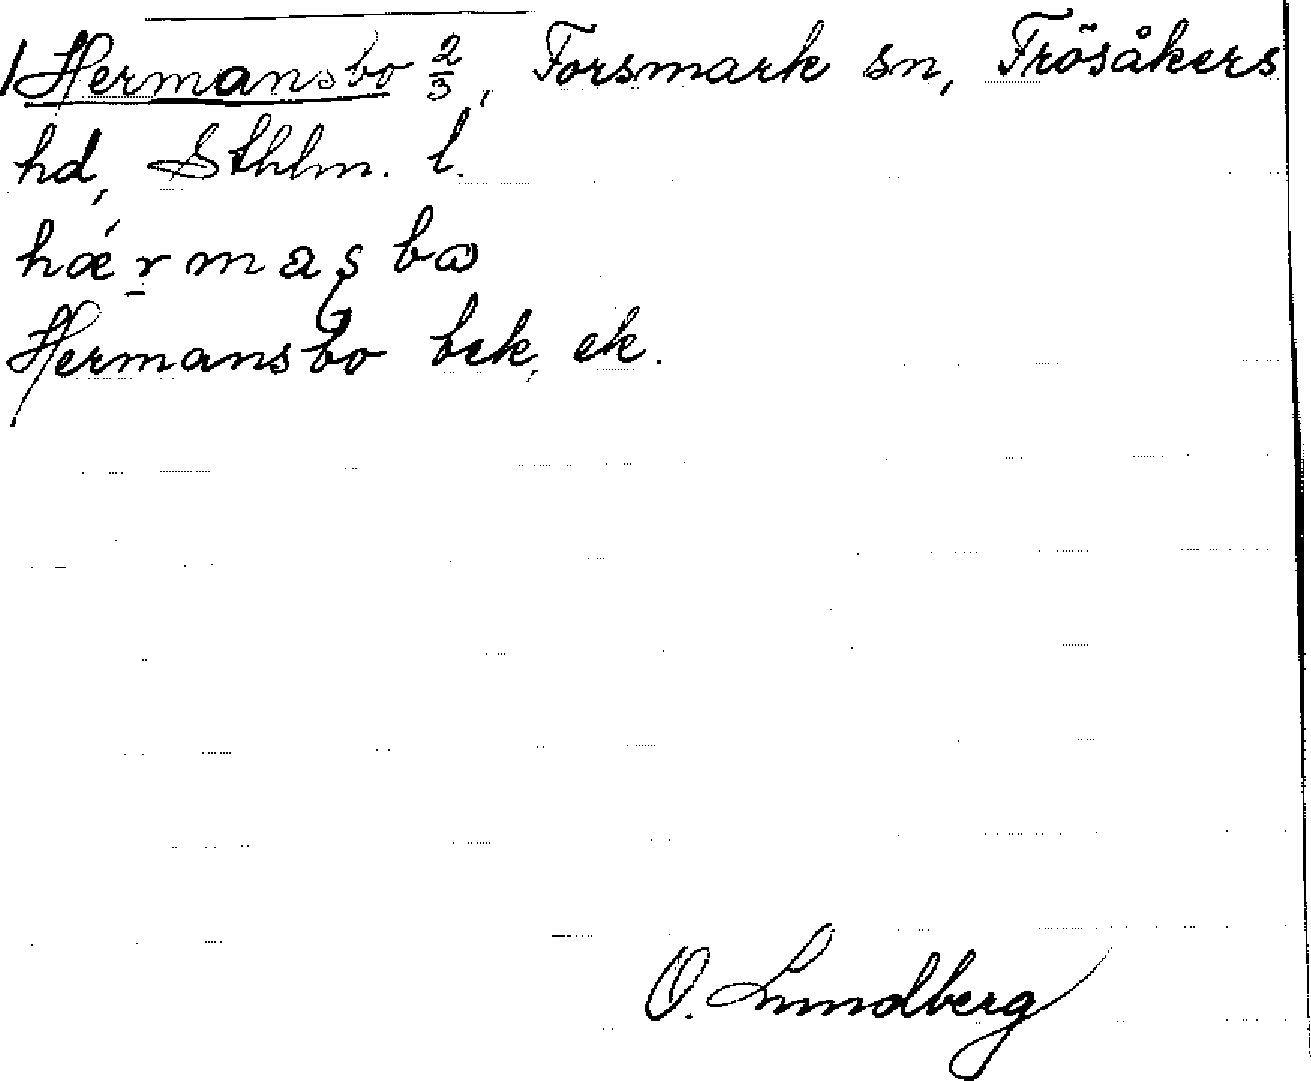 Hermansbo 2/3, Forsmark sn, Frösåkers
hd, Sthlm. l.
hǽrmasbɷ
Hermansbo bek, ek.
O. Lundberg